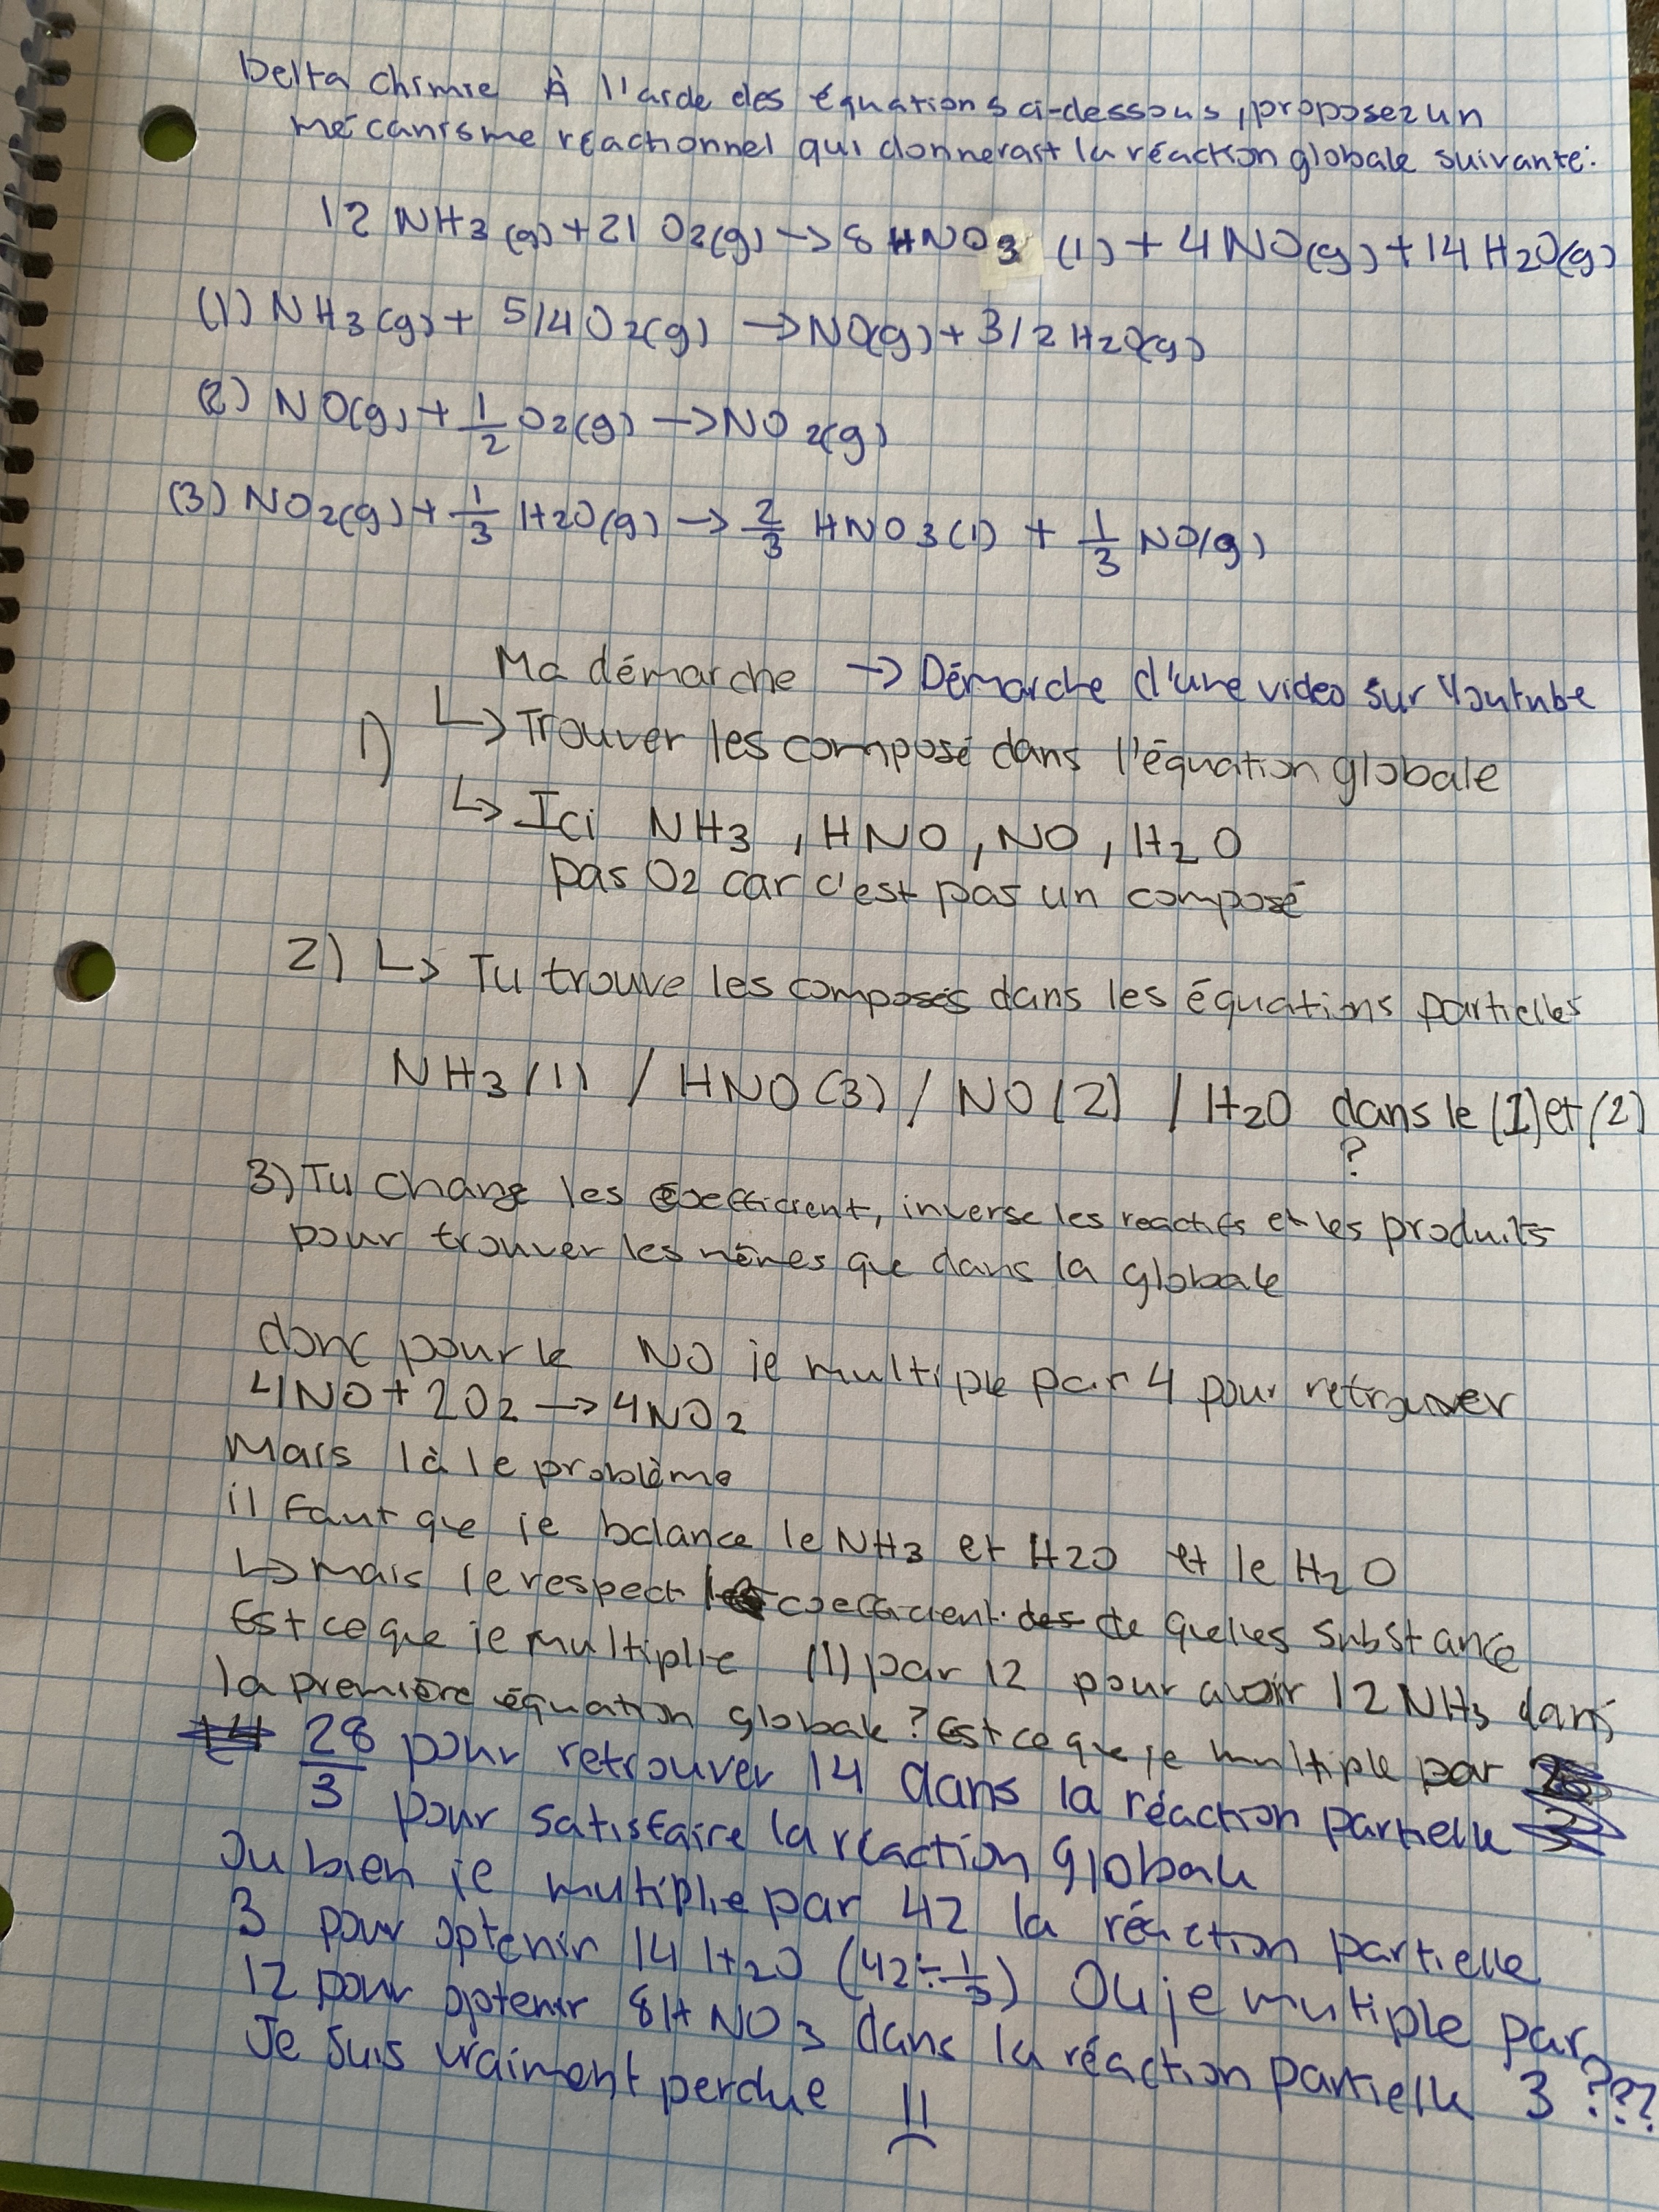 Delta chimie À l'aide des équations ci-dessous, proposez un
mécanisme réactionnel qui donnerait la réaction globale suivante:
12 NH3(g) + 21 O2(g) -> 8 HNO3 (l) + 4NO(g) + 14 H2O(g)
(1) NH3(g) + 5/4 O2(g) -> NO(g) + 3/2 H2O(g)
(2) NO(g) + 1/2 O2(g) -> NO2(g)
(3) NO2(g) + 1/3 H2O(g) -> 2/3 HNO3(l) + 1/3 NO(g)
Ma démarche -> Démarche d'une video sur Youtube
1) ↳ Trouver les composé dans l'équation globale
↳ Ici NH3, HNO, NO, H2O
pas O2 car c'est pas un composé
2) ↳ Tu trouve les composés dans les équations partielles
NH3(1) / HNO(3) / NO(2) / H2O dans le (1) et (2)
?
3) Tu change les coefficient, inverse les reactifs et les produits
pour trouver les mêmes que dans la globale
donc pour le NO je multiple par 4 pour retrouver
4NO + 2O2 -> 4NO2
Mais là le problème
il faut que je balance le NH3 et H2O et le H2O
↳ mais je respect le coefficient des de quelles substance
Est ce que je multiplie (1) par 12 pour avoir 12 NH3 dans
la première équation globale? Est ce que je multiple par
28/3 pour retrouver 14 dans la réaction partielle
pour satisfaire la réaction globale
Ou bien je multiplie par 42 la réaction partielle
3 pour optenir 14 H2O (42÷1/3) Ou je multiple par
12 pour optenir 8HNO3 dans la réaction partielle 3???
Je suis vraiment perdue